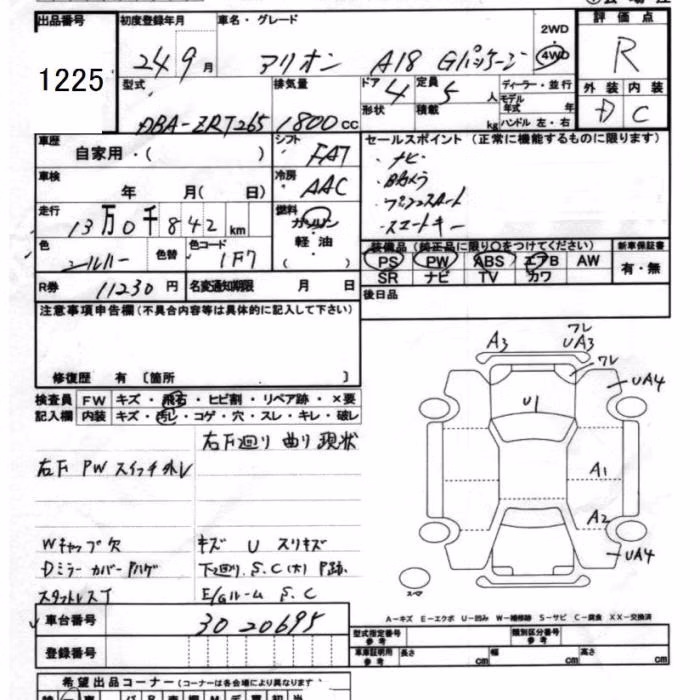 出品番号
1225
初度登録年月
24 9月
車名・グレード
アリオン A18 Gパッケージ
2WD
4WD
評価点
R
外装 内装
D C
型式
DBA-ZRT265
排気量
1800cc
ドア 4
形状
定員 5人
積載 kg
ディーラー・並行
モデル年式 年
ハンドル 左・右
車歴
自家用・( )
シフト
FAT
車検
年 月( 日)
冷房
AAC
走行
13万0千842km
燃料
ガソリン
軽油
( )
色
シルバー
色替
色コード
1F7
R券 11230円
名変通知期限 月 日
セールスポイント(正常に機能するものに限ります)
・ナビ
・Bカメラ
・プッシュスタート
・スマートキー
装備品(純正品に限り○をつけてください)
PS PW ABS エアB AW
SR ナビ TV カワ
新車保証書
有・無
後日品
注意事項申告欄(不具合内容等は具体的に記入して下さい)
修復歴 有 〔箇所 〕
検査員記入欄
FW キズ・飛石・ヒビ割・リペア跡・×要
内装 キズ・汚レ・コゲ・穴・スレ・キレ・破レ
右F廻り 曲り 現状
右F PW スイッチ外レ
Wキャップ欠
キズ U スリキズ
Dミラー カバー ハゲ
下廻り、S、C(大) P跡、
スタットレスT
E/Gルーム S、C
A3
ワレ
UA3
ワレ
UA4
U1
A1
A2
UA4
スペア
A-キズ E-エクボ U-凹み W-補修跡 S-サビ C-腐食 XX-交換済
車台番号
3020695
登録番号
型式指定番号 参考
類別区分番号 参考
車庫証明用 参考
長さ cm
幅 cm
高さ cm
希望出品コーナー(コーナーは各会場により異なります